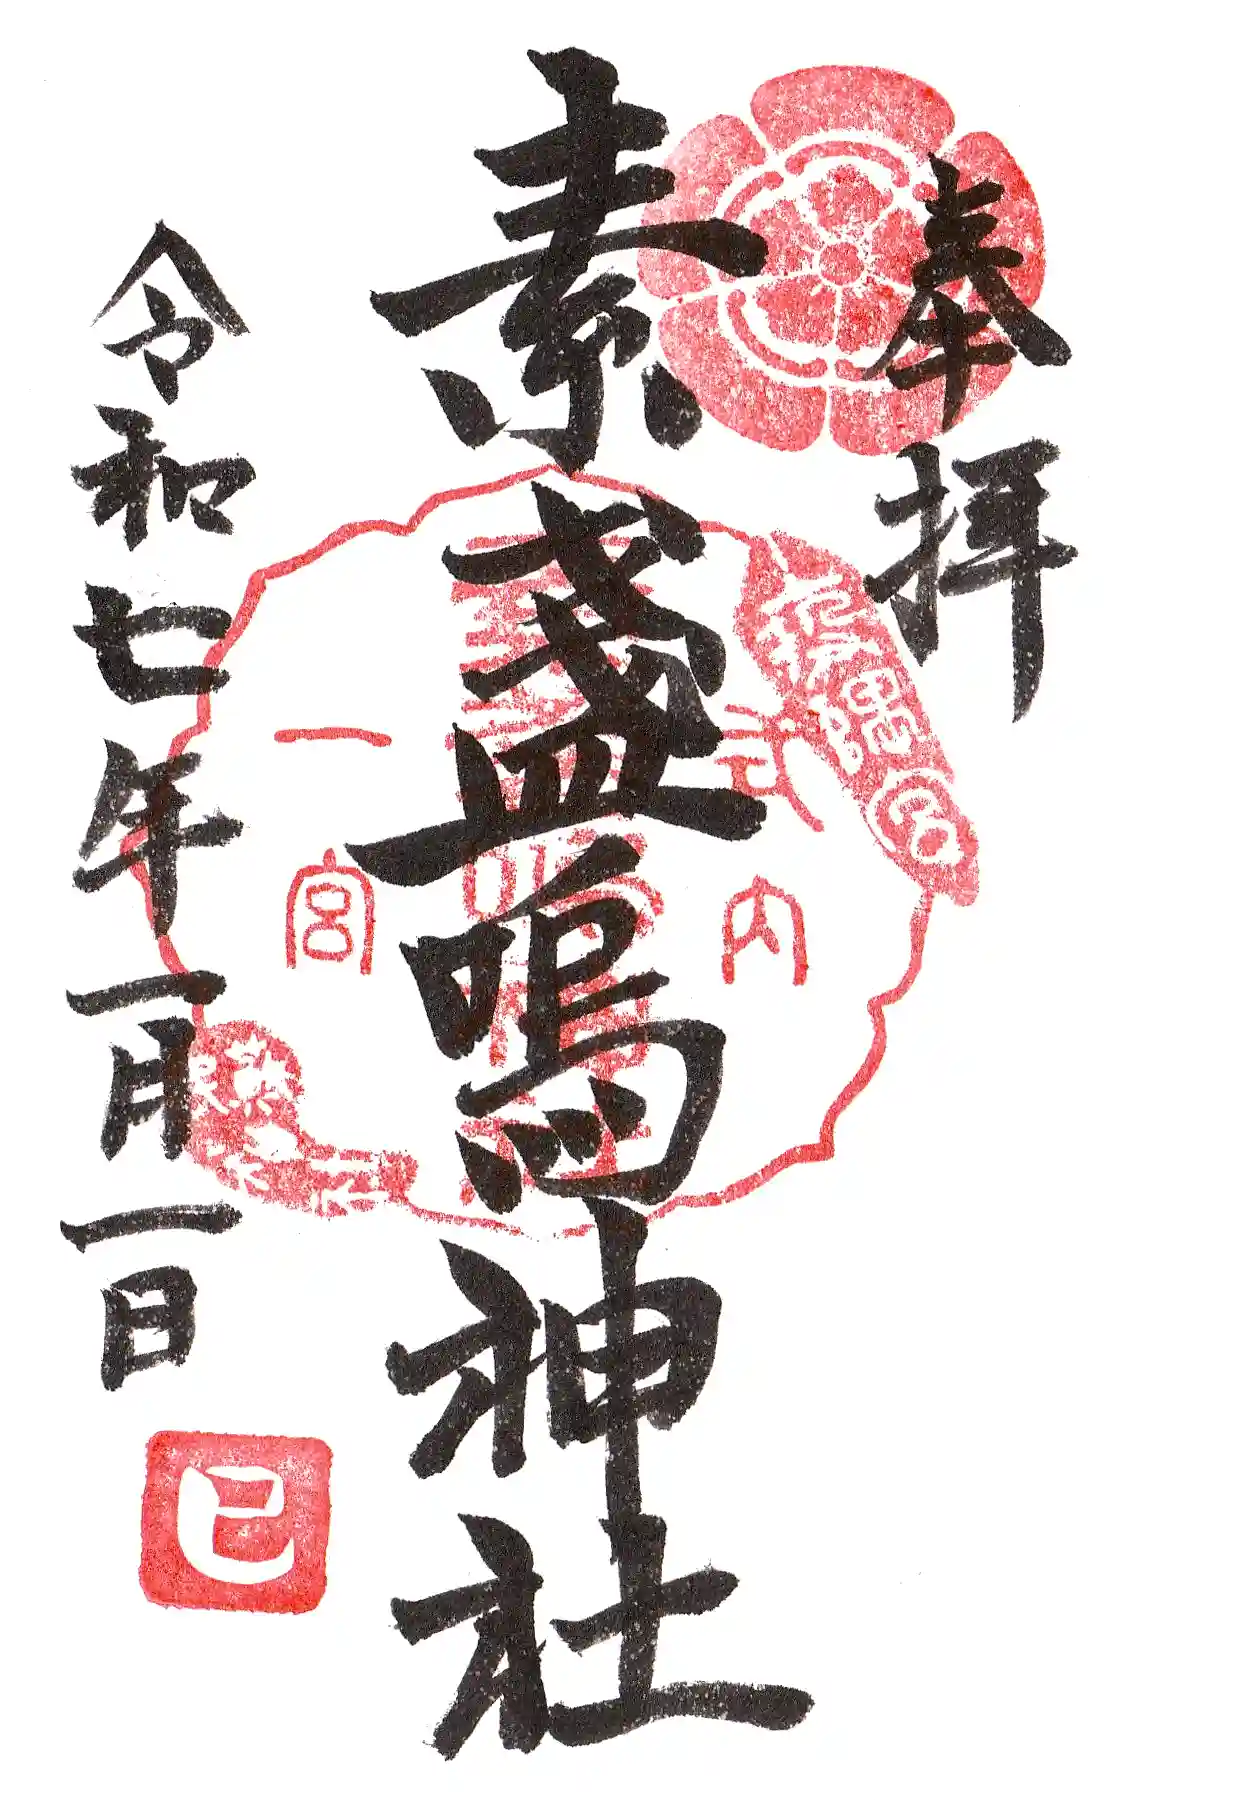 奉拝
式内
素盞嗚神社
一宮
令和七年一月一日
巳